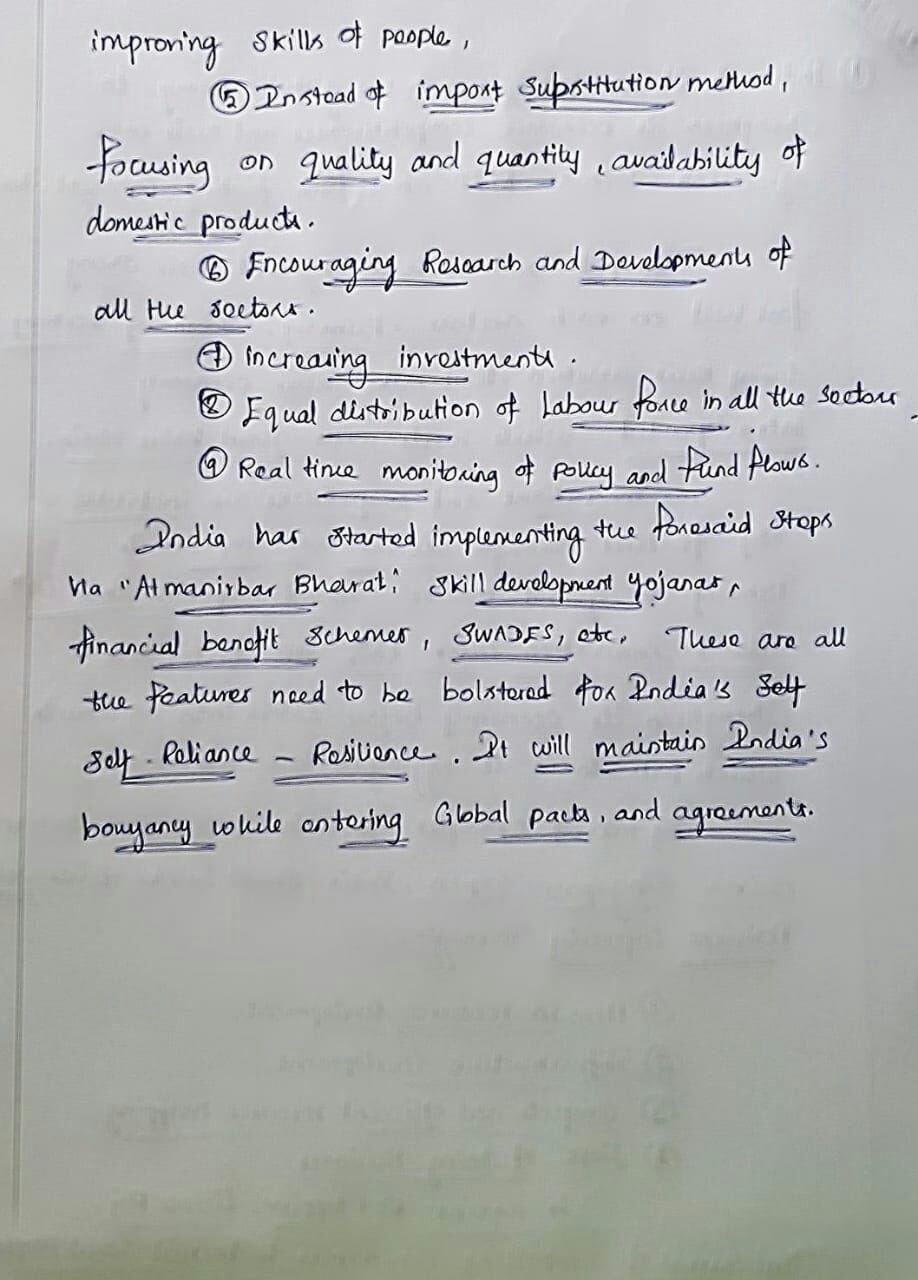 improving skills of people,
⑤ Instead of import substitution method,
focusing on quality and quantity, availability of
domestic products.
⑥ Encouraging Research and Developments of
all the sectors.
⑦ increasing investments.
⑧ Equal distribution of Labour force in all the sectors.
⑨ Real time monitoring of policy and fund flows.
India has started implementing the foresaid steps
via "Atmanirbar Bharat", skill development yojanas,
financial benefit schemes, SWADES, etc. These are all
the features need to be bolstered for India's self
self-Reliance - Resilience. It will maintain India's
bouyancy while entering Global pacts, and agreements.